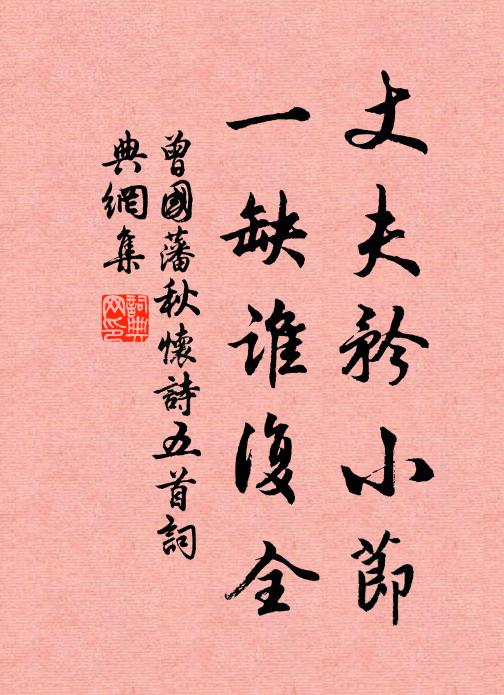 丈夫矜小節
一缺誰復全
曾國藩秋懷詩五首詞
典網集
詞典網印